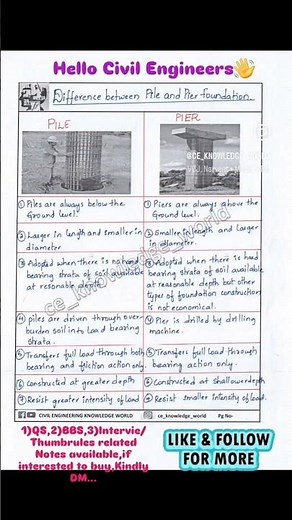 Hello Civil Engineers👋
Difference between Pile and Pier foundation.
PILE
PIER
@CE_KNOWLEDGE
① Piles are always below the
Ground level.
① Piers are always above the
Ground level.
② Larger in length and smaller in
diameter
② Smaller in length and larger
in diameter.
③ Adopted when there is no hard
bearing strata of soil available
at resonable depth
③ Adopted when there is hard
bearing strata of soil available
at reasonable depth but other
types of foundation construction
is not economical.
④ piles are driven through over-
burden soil into load bearing
strata.
④ Pier is drilled by drilling
machine.
⑤ Transfers full load through both
bearing and friction action only.
⑤ Transfers full load through
bearing action only.
⑥ Constructed at greater depth
⑥ Constructed at shallow depth
⑦ Resist greater intensity of load
⑦ Resist smaller intensity of load.
ce_knowledge_world
CIVIL ENGINEERING KNOWLEDGE WORLD
ce_knowledge_world
Pg No-
1)QS,2)BBS,3)Intervie/
Thumbrules related
Notes available,if
interested to buy.Kindly
DM...
LIKE & FOLLOW
FOR MORE